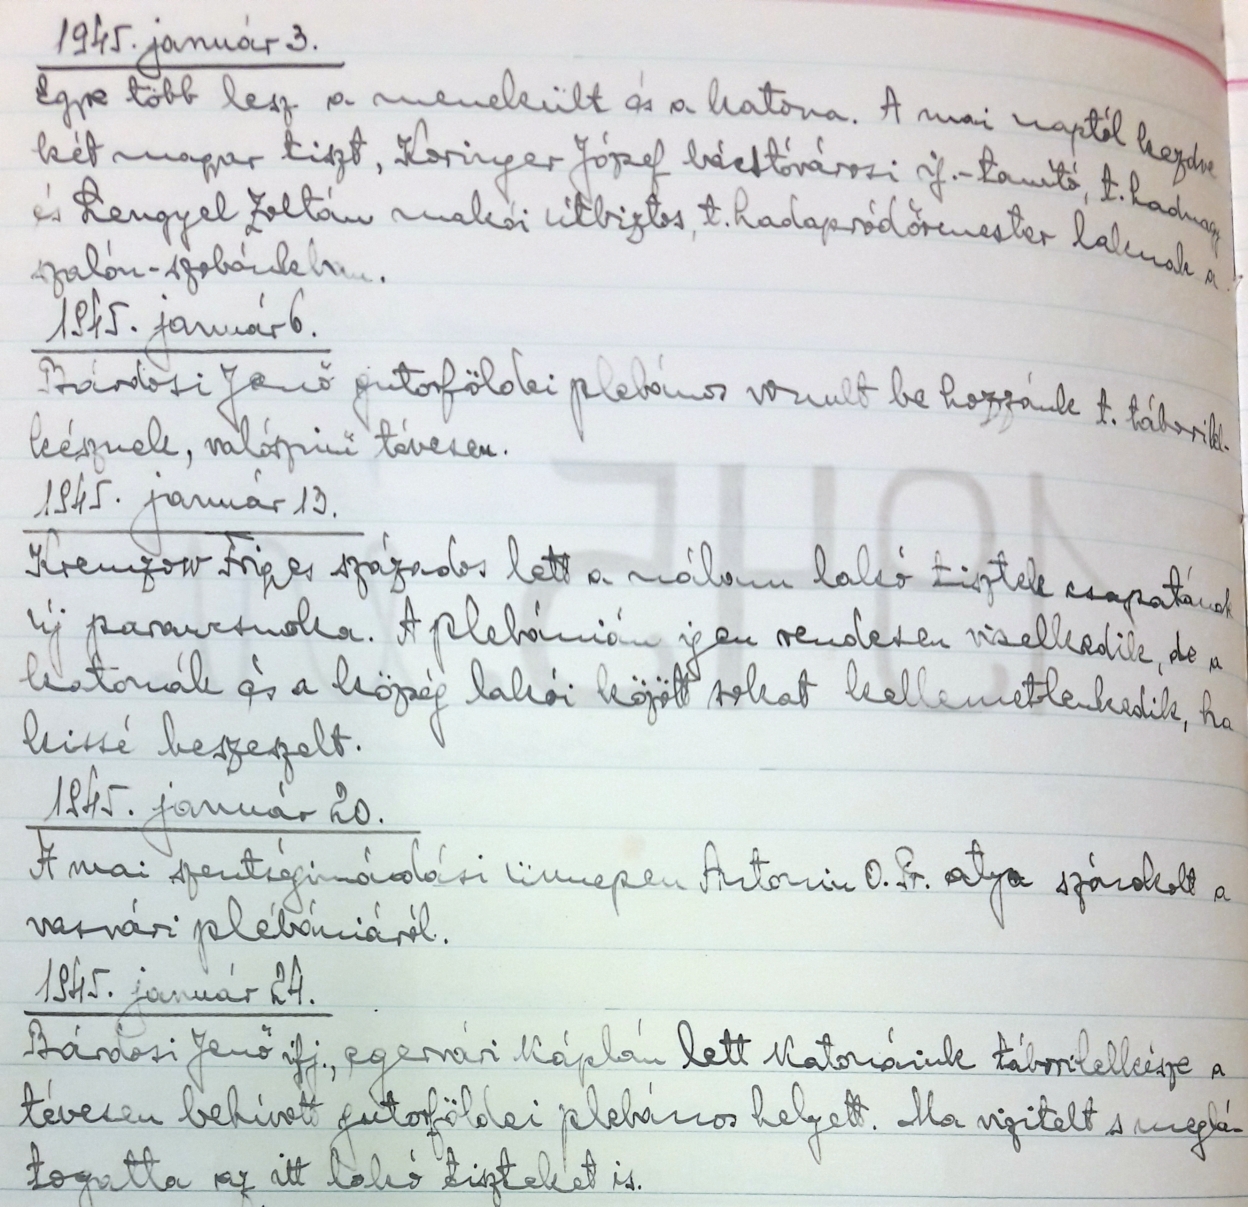 1945. január 3.
Egyre több lesz a menekült és a katona. A mai naptól kezdve
két magyar tiszt, Koringer József bácstóvárosi if.-tanító, t. hadnagy
és Lengyel Zoltán makói útbiztos, t. hadapródőrmester laknak a
szalón-szobánkban.
1945. január 6.
Bárdosi Jenő gutorföldei plebános vonult be hozzánk t. táborilel-
késznek, valószinű tévesen.
1945. január 13.
Kremzow Friges százados lett a nálam lakó tisztek csapatának
új parancsnoka. A plebánián igen rendesen viselkedik, de a
katonák és a község lakói között sokat kellemetlenkedik, ha
kissé beszeszelt.
1945. január 20.
A mai szentségimádási ünnepen Antonin O. Pr. atya szónokolt a
vasvári plébániáról.
1945. január 24.
Bárdosi Jenő ifj., egervári káplán lett katonáink táborilelkésze a
tévesen behívott gutorföldei plebános helyett. Ma vizitelt s meglá-
togatta az itt lakó tiszteket is.